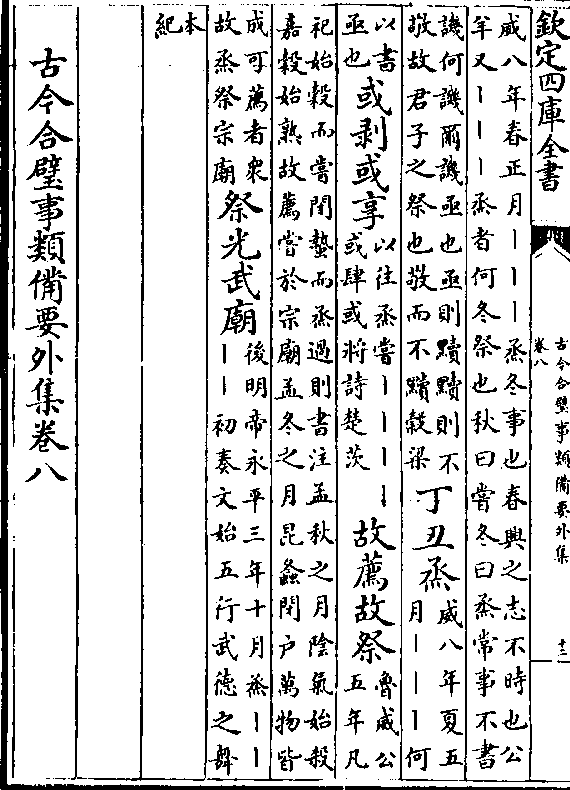 欽定四庫全書
古今合璧事類備要外集
卷八
十三
威八年春正月丨丨丨烝冬事也春興之志不時也公
羊又丨丨丨烝者何冬祭也秋曰嘗冬曰烝常事不書
譏何譏爾譏亟也亟則黷黷則不
敬故君子之祭也敬而不黷榖梁
丁丑烝
威八年夏五
月丨丨丨何
以書
亟也
或剥或享
以往烝嘗丨丨丨丨
或肆或將詩楚茨
故薦故祭
魯威公
五年凡
祀始榖而嘗閉蟄而烝過則書注孟秋之月陰氣始殺
嘉榖始熟故薦嘗於宗廟孟冬之月昆蟲閉户萬物皆
成可薦者衆
故烝祭宗廟
祭光武廟
後明帝永平三年十月烝丨丨
丨丨初奏文始五行武德之舞
本
紀
古今合璧事類備要外集卷八